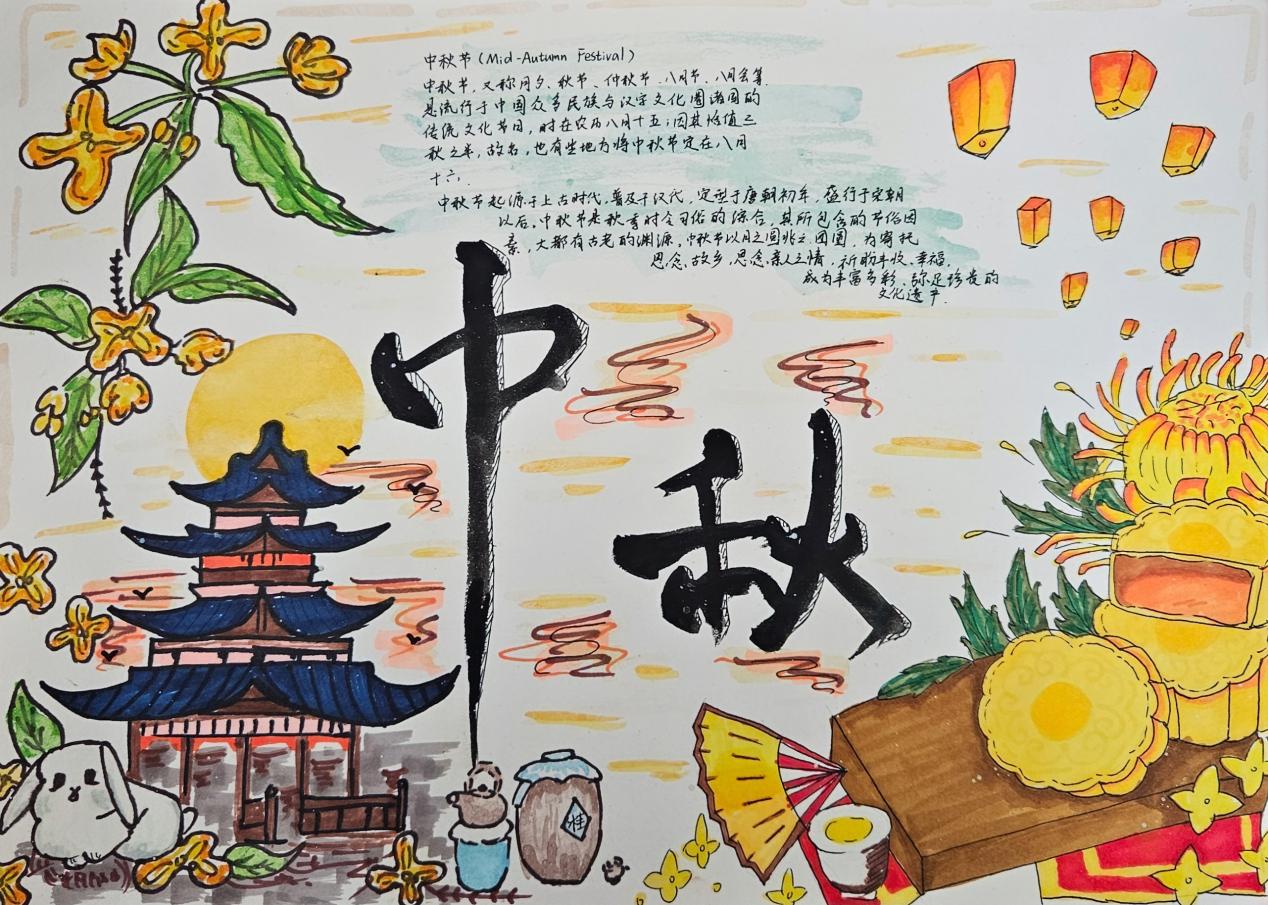 中秋节（Mid-Autumn Festival）
中秋节，又称月夕、秋节、仲秋节、八月节、八月会等
是流行于中国众多民族与汉字文化圈诸国的
传统文化节日，时在农历八月十五；因其恰值三
秋之半，故名，也有些地方将中秋节定在八月
十六。
中秋节起源于上古时代，普及于汉代，定型于唐朝初年，盛行于宋朝
以后。中秋节是秋季时令习俗的综合，其所包含的节俗因
素，大都有古老的渊源。中秋节以月之圆兆之团圆，为寄托
思念故乡，思念亲人之情，祈盼丰收、幸福，
成为丰富多彩、弥足珍贵的
文化遗产。
中
秋
桂